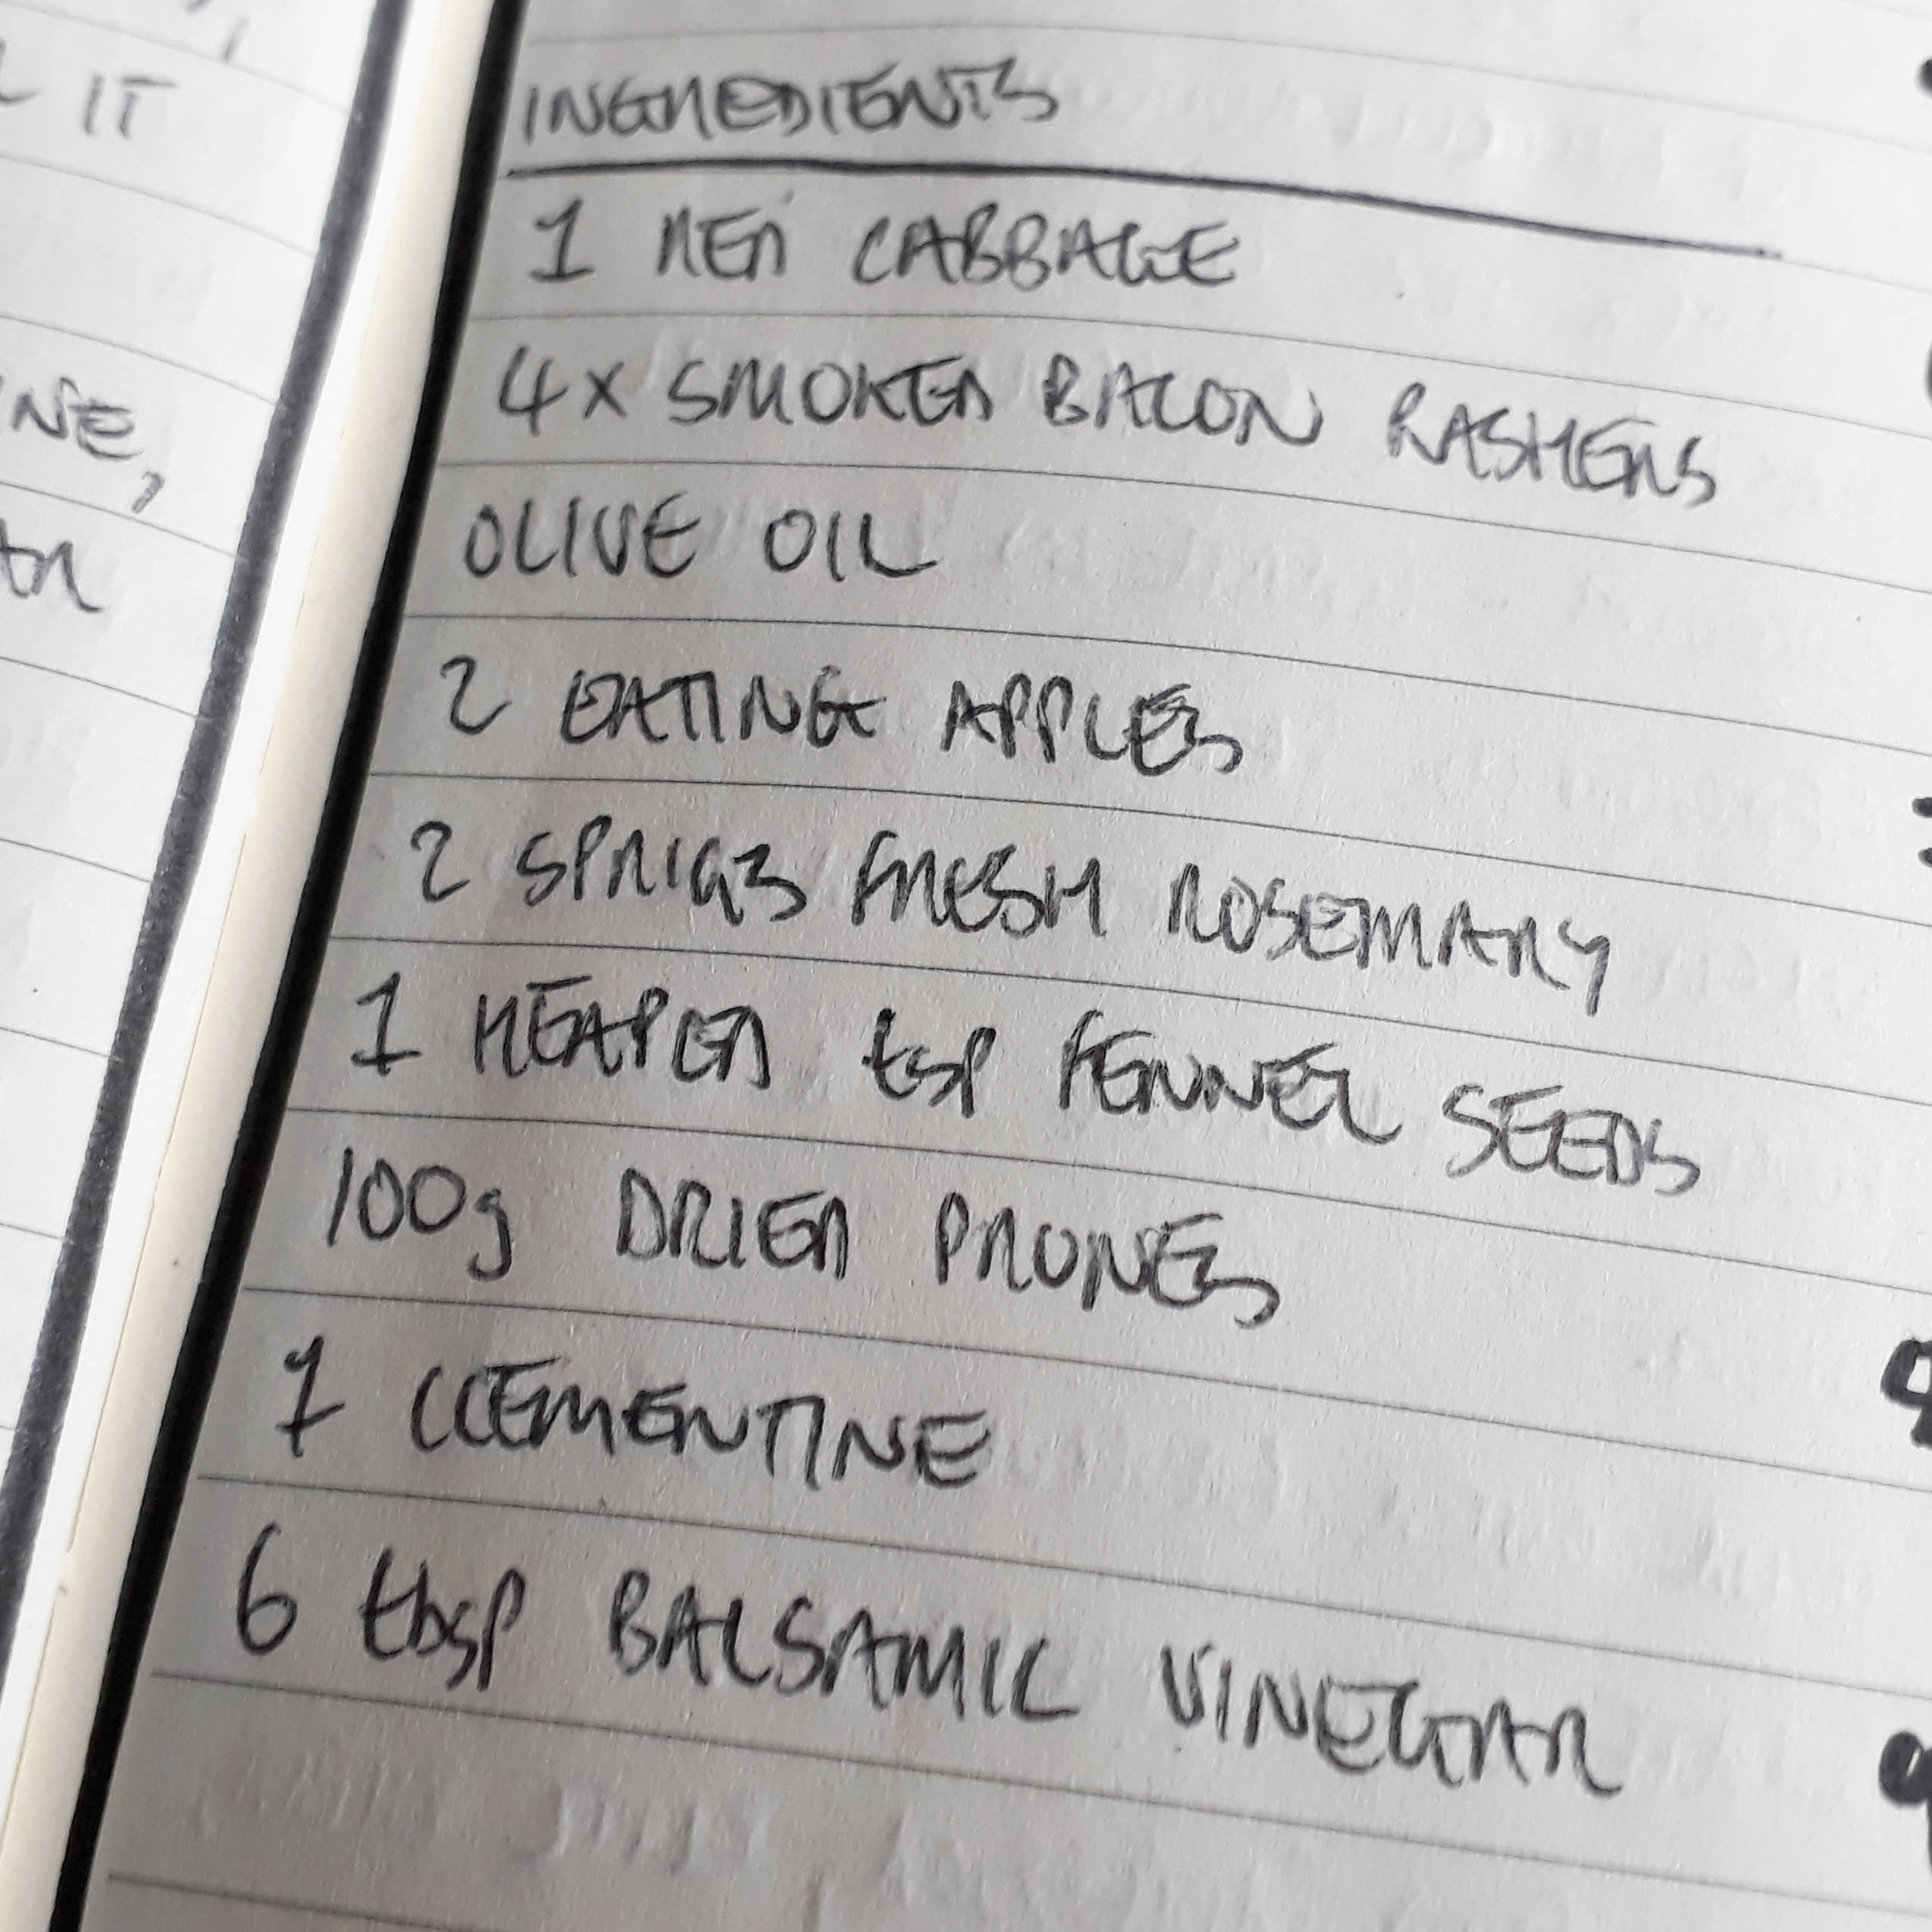 IT
INE,
AR
INGREDIENTS
1 RED CABBAGE
4x SMOKED BACON RASHERS
OLIVE OIL
2 EATING APPLES
2 SPRIGS FRESH ROSEMARY
1 HEAPED tsp FENNEL SEEDS
100g DRIED PRUNES
1 CLEMENTINE
6 tbsp BALSAMIC VINEGAR